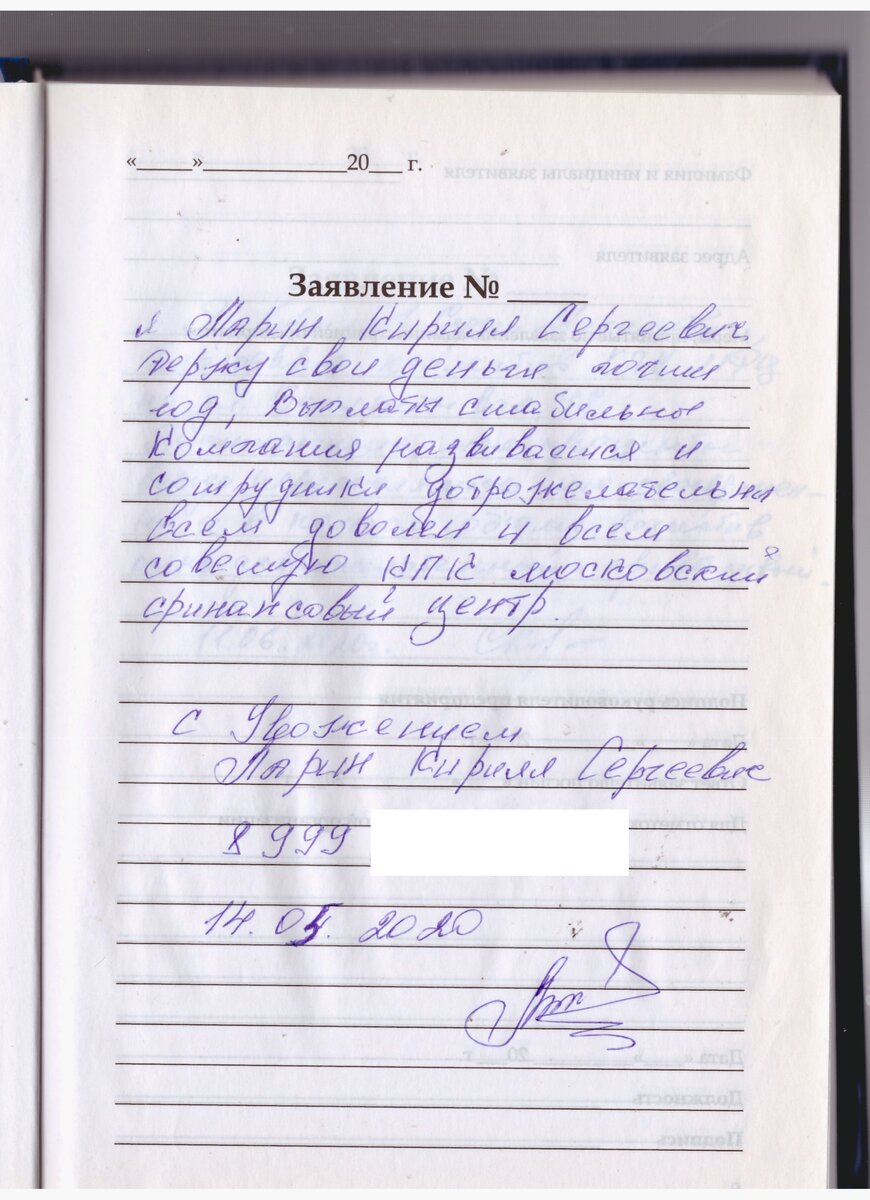 «____»______________20___ г.
Заявление № _____
я Ларин Кирилл Сергеевич
держу свои деньги почти
год, Выплаты стабильные
Компания развивается и
сотрудники доброжелательны
всем доволен и всем
советую КПК московский
финансовый центр.
С Уважением
Ларин Кирилл Сергеевич
8 999
14. 05. 2020